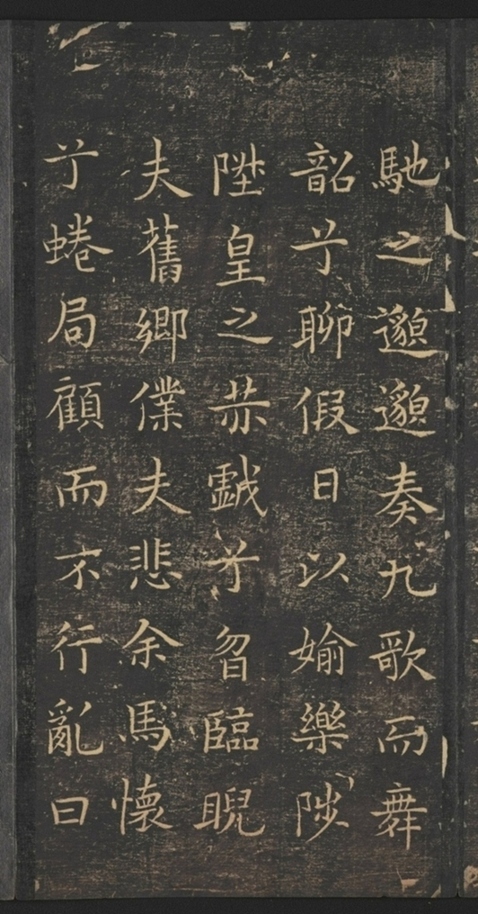 馳之邈邈奏九歌而舞
韶兮聊假日以媮樂陟
陞皇之赤戱兮忽臨睨
夫舊鄉僕夫悲余馬懷
兮蜷局顧而不行亂曰